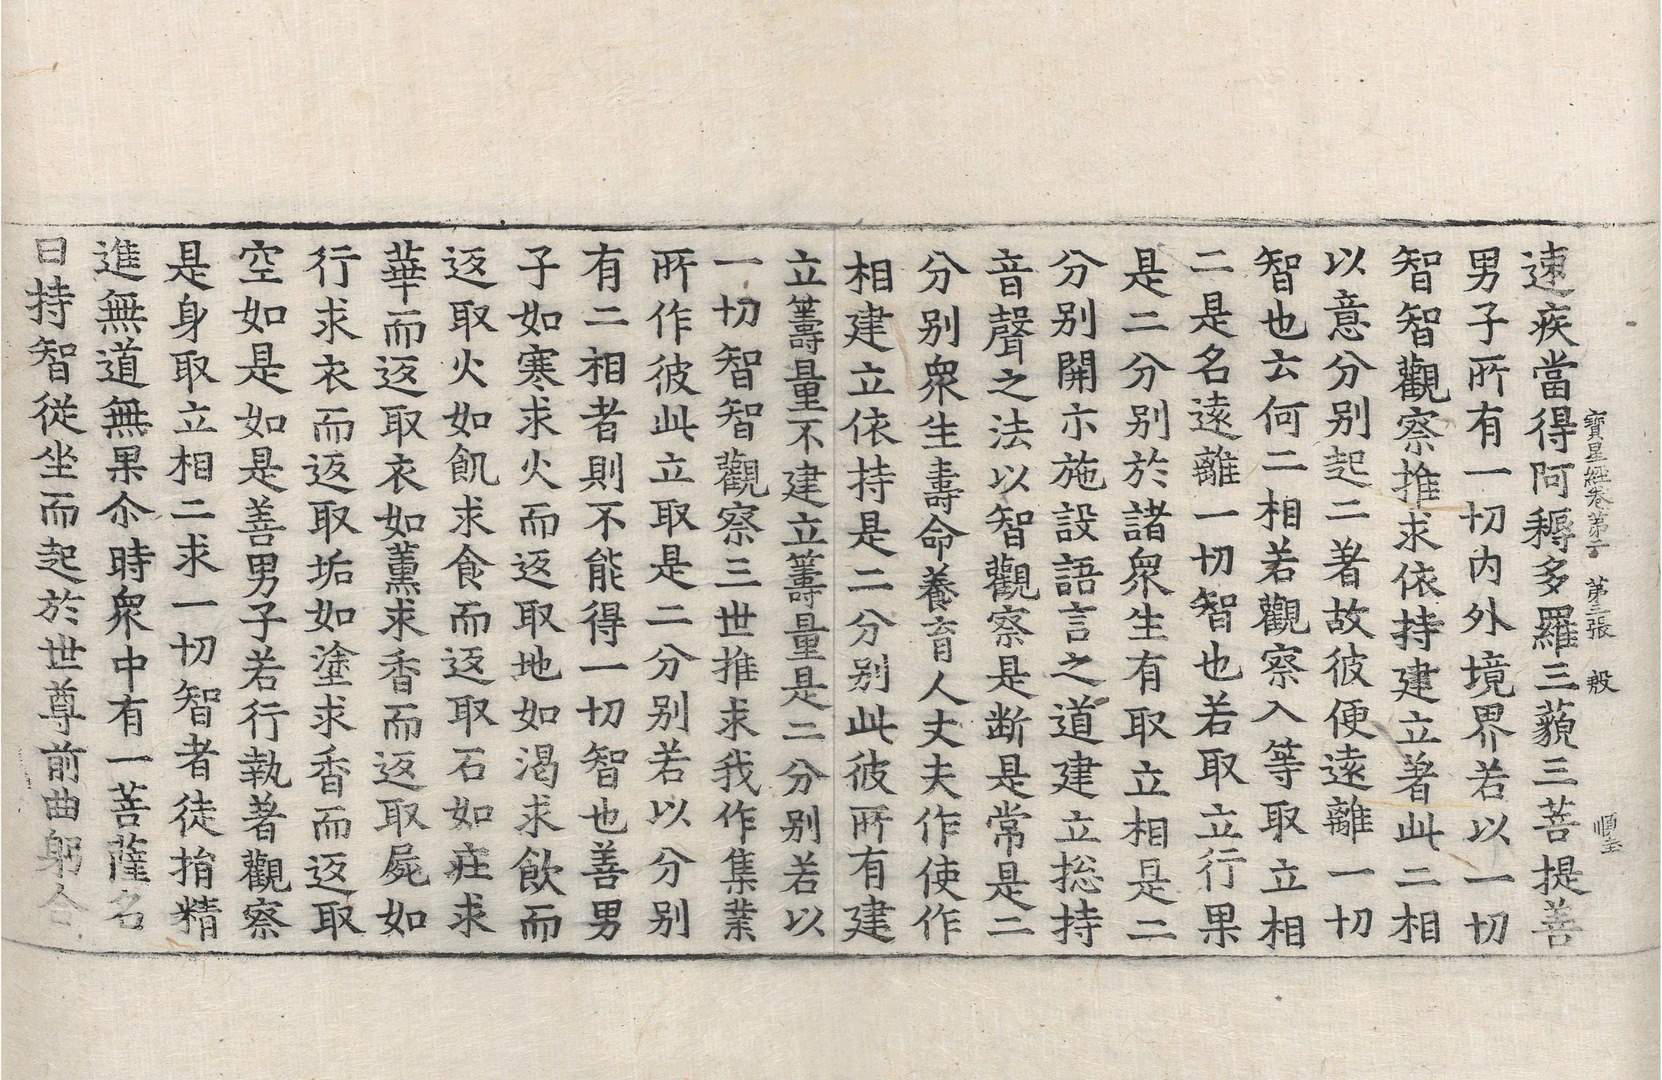 寶星經卷第二　第三張　般　順
速疾當得阿耨多羅三藐三菩提善
男子所有一切内外境界若以一切
智智觀察推求依持建立著此二相
以意分別起二著故彼便遠離一切
智也云何二相若觀察入等取立相
二是名遠離一切智也若取立行果
是二分別於諸衆生有取立相是二
分別開示施設語言之道建立捴持
音聲之法以智觀察是断是常是二
分別衆生壽命養育人丈夫作使作
相建立依持是二分別此彼所有建
立籌量不建立籌量是二分別若以
一切智智觀察三世推求我作集業
所作彼此立取是二分別若以分別
有二相者則不能得一切智也善男
子如寒求火而返取地如渴求飲而
返取火如飢求食而返取石如莊求
華而返取衣如薰求香而返取屍如
行求衣而返取垢如塗求香而返取
空如是如是善男子若行執著觀察
是身取立相二求一切智者徒捐精
進無道無果尒時衆中有一菩薩名
曰持智從坐而起於世尊前曲躬合